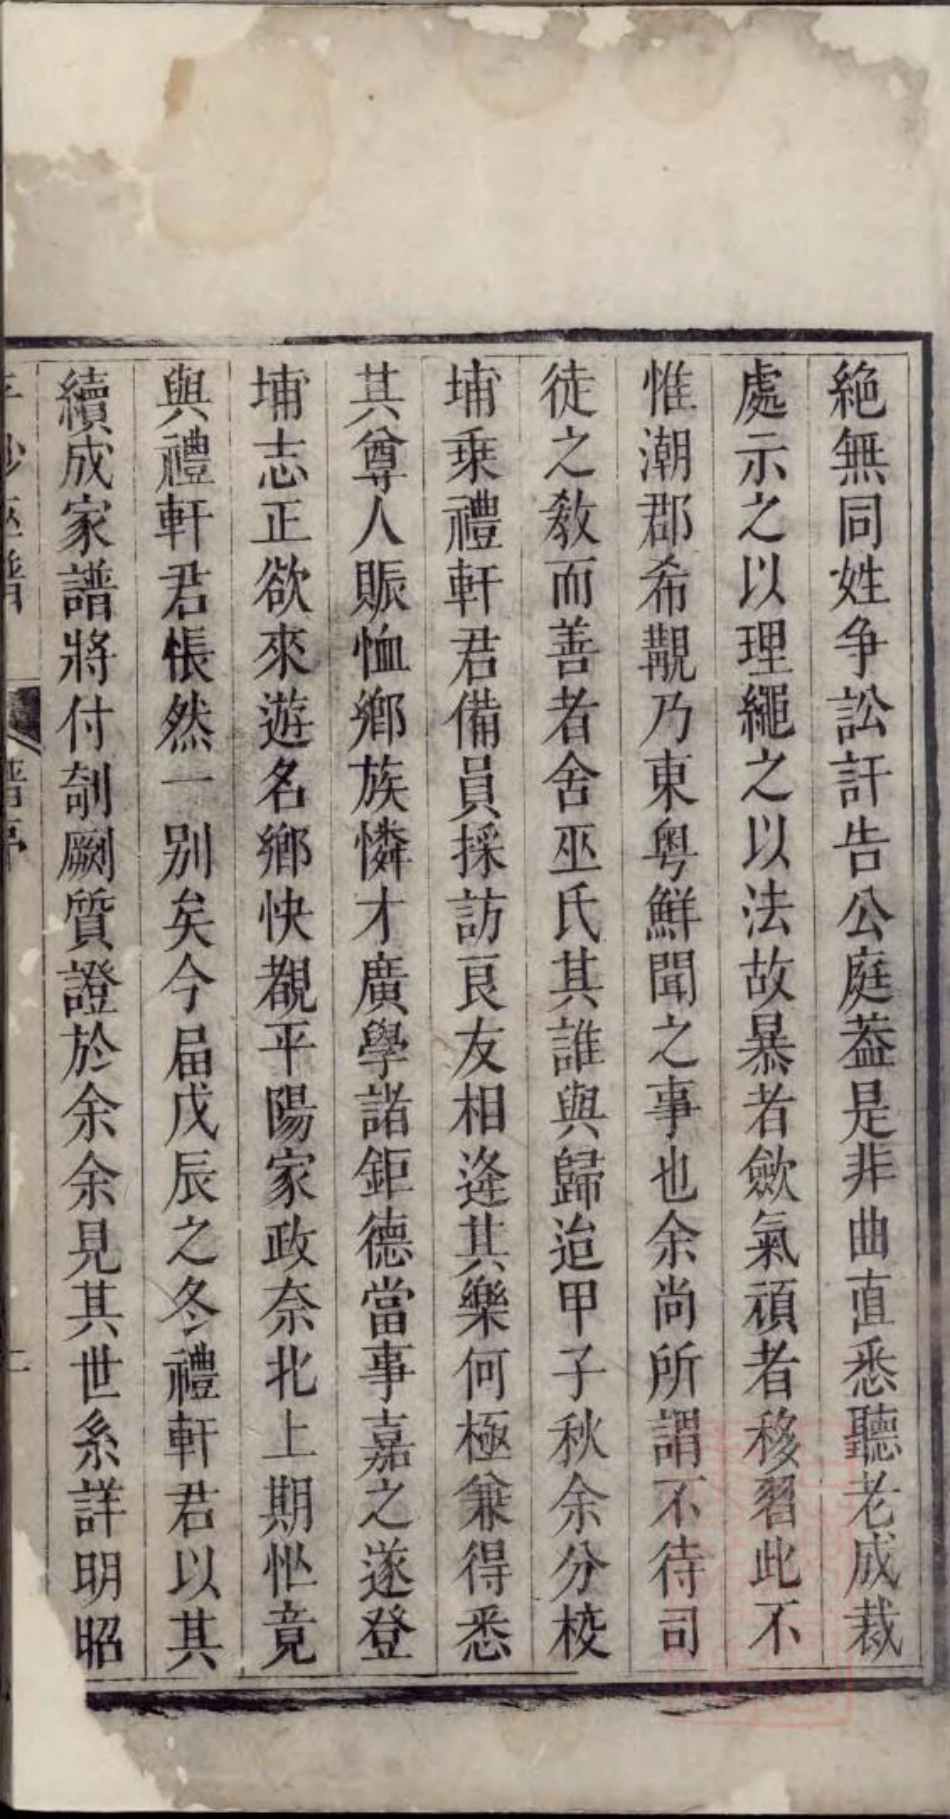 絶無同姓争訟訐告公庭葢是非曲直悉聽老成裁
處示之以理繩之以法故暴者歛氣頑者移習此不
惟潮郡希覯乃東粤鮮聞之事也余尚所謂不待司
徒之敎而善者舍巫氏其誰與歸迨甲子秋余分校
埔乗禮軒君備員採訪良友相逢其樂何極兼得悉
其尊人賑恤鄉族憐才廣學諸鉅德當事嘉之遂登
埔志正欲來遊名鄉快覩平陽家政奈北上期怭竟
與禮軒君悵然一别矣今届戊辰之冬禮軒君以其
續成家譜將付剞劂質證於余余見其世系詳明昭
譜序
二